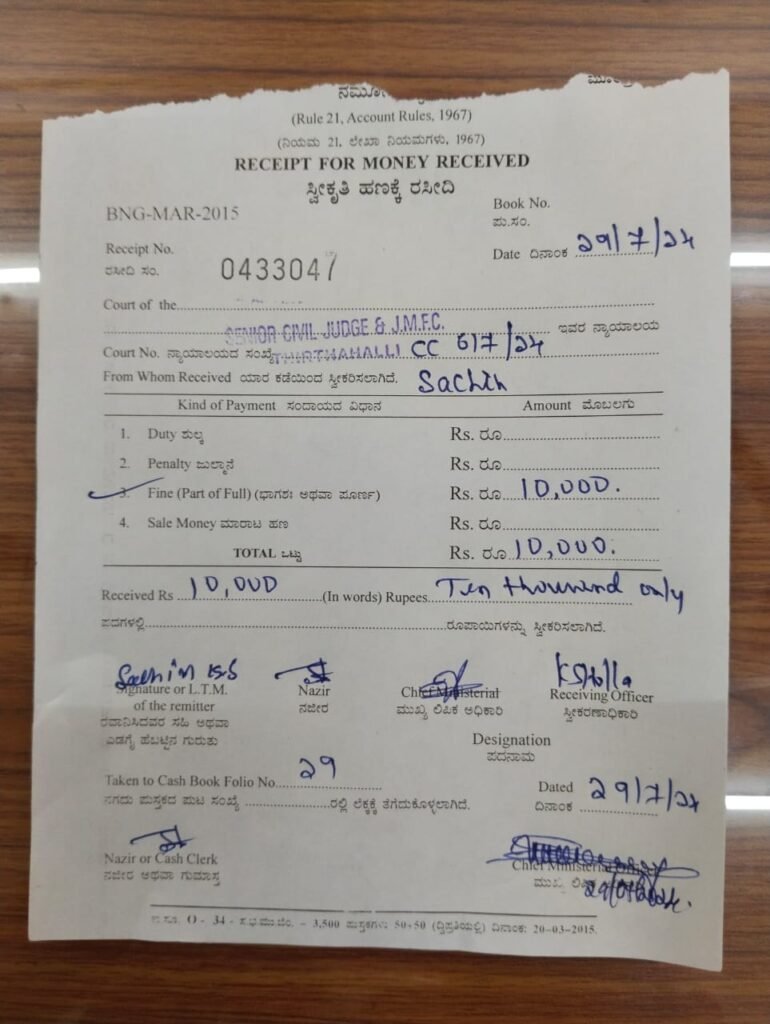 (Rule 21, Account Rules, 1967)
(ನಿಯಮ 21, ಲೇಖಾ ನಿಯಮಗಳು, 1967)
RECEIPT FOR MONEY RECEIVED
ಸ್ವೀಕೃತಿ ಹಣಕ್ಕೆ ರಸೀದಿ
BNG-MAR-2015
Book No.
ಪು.ಸಂ.
Receipt No.
ರಸೀದಿ ಸಂ. 0433047
Date ದಿನಾಂಕ 29/7/24
Court of the
SENIOR CIVIL JUDGE & J.M.F.C. ಇವರ ನ್ಯಾಯಾಲಯ
Court No. ನ್ಯಾಯಾಲಯದ ಸಂಖ್ಯೆ THIRTHAHALLI CC 617/24
From Whom Received ಯಾರ ಕಡೆಯಿಂದ ಸ್ವೀಕರಿಸಲಾಗಿದೆ. Sachin
Kind of Payment ಸಂದಾಯದ ವಿಧಾನ Amount ಮೊಬಲಗು
1. Duty ಶುಲ್ಕ Rs. ರೂ
2. Penalty ಜುಲ್ಮಾನೆ Rs. ರೂ
3. Fine (Part of Full) (ಭಾಗಶಃ ಅಥವಾ ಪೂರ್ಣ) Rs. ರೂ 10,000.
4. Sale Money ಮಾರಾಟ ಹಣ Rs. ರೂ
TOTAL ಒಟ್ಟು Rs. ರೂ 10,000.
Received Rs 10,000 (In words) Rupees Ten thousand only
ಪದಗಳಲ್ಲಿ ರೂಪಾಯಿಗಳನ್ನು ಸ್ವೀಕರಿಸಲಾಗಿದೆ.
Signature or L.T.M.
of the remitter
ರವಾನಿಸಿದವರ ಸಹಿ ಅಥವಾ
ಎಡಗೈ ಹೆಬ್ಬೆಟ್ಟಿನ ಗುರುತು
Nazir
ನಜೀರ
Chief Ministerial
ಮುಖ್ಯ ಲಿಪಿಕ ಅಧಿಕಾರಿ
Receiving Officer
ಸ್ವೀಕರಣಾಧಿಕಾರಿ
Designation
ಪದನಾಮ
Taken to Cash Book Folio No. 29
ನಗದು ಪುಸ್ತಕದ ಪುಟ ಸಂಖ್ಯೆ ರಲ್ಲಿ ಲೆಕ್ಕಕ್ಕೆ ತೆಗೆದುಕೊಳ್ಳಲಾಗಿದೆ.
Dated
ದಿನಾಂಕ 29/7/24
Nazir or Cash Clerk
ನಜೀರ ಅಥವಾ ಗುಮಾಸ್ತ
Chief Ministerial Officer
ಮುಖ್ಯ
O - 34 - 3,500 ಪುಸ್ತಕಗಳು 50+50 (ದ್ವಿಪ್ರತಿಯಲ್ಲಿ) ದಿನಾಂಕ: 20-03-2015.